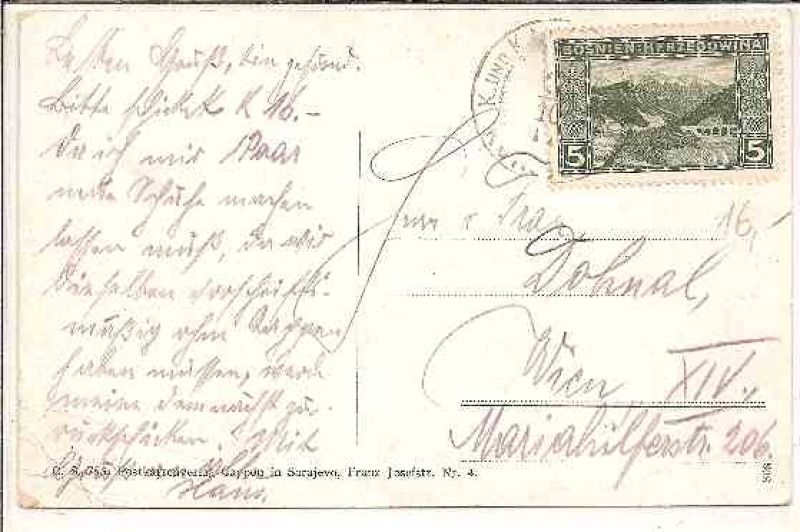 Besten Gruß, bin gesund.
Bitte schickt K 16.–
da ich mir Paar
neue Schuhe machen
lassen muß, da wir
dieselben vorschrifts-
mäßig ohne Kappen
haben müssen, werde
meine demnächst zu-
rückschicken. Mit
Gruß
Hans.
K. UND K.
BOSNIEN-HERZEGOWINA
5 5
16,-
Dohnal,
Wien XIV.,
Mariahilferstr. 206.
Postkartenverlag Cappon in Sarajevo, Franz Josefstr. Nr. 4.